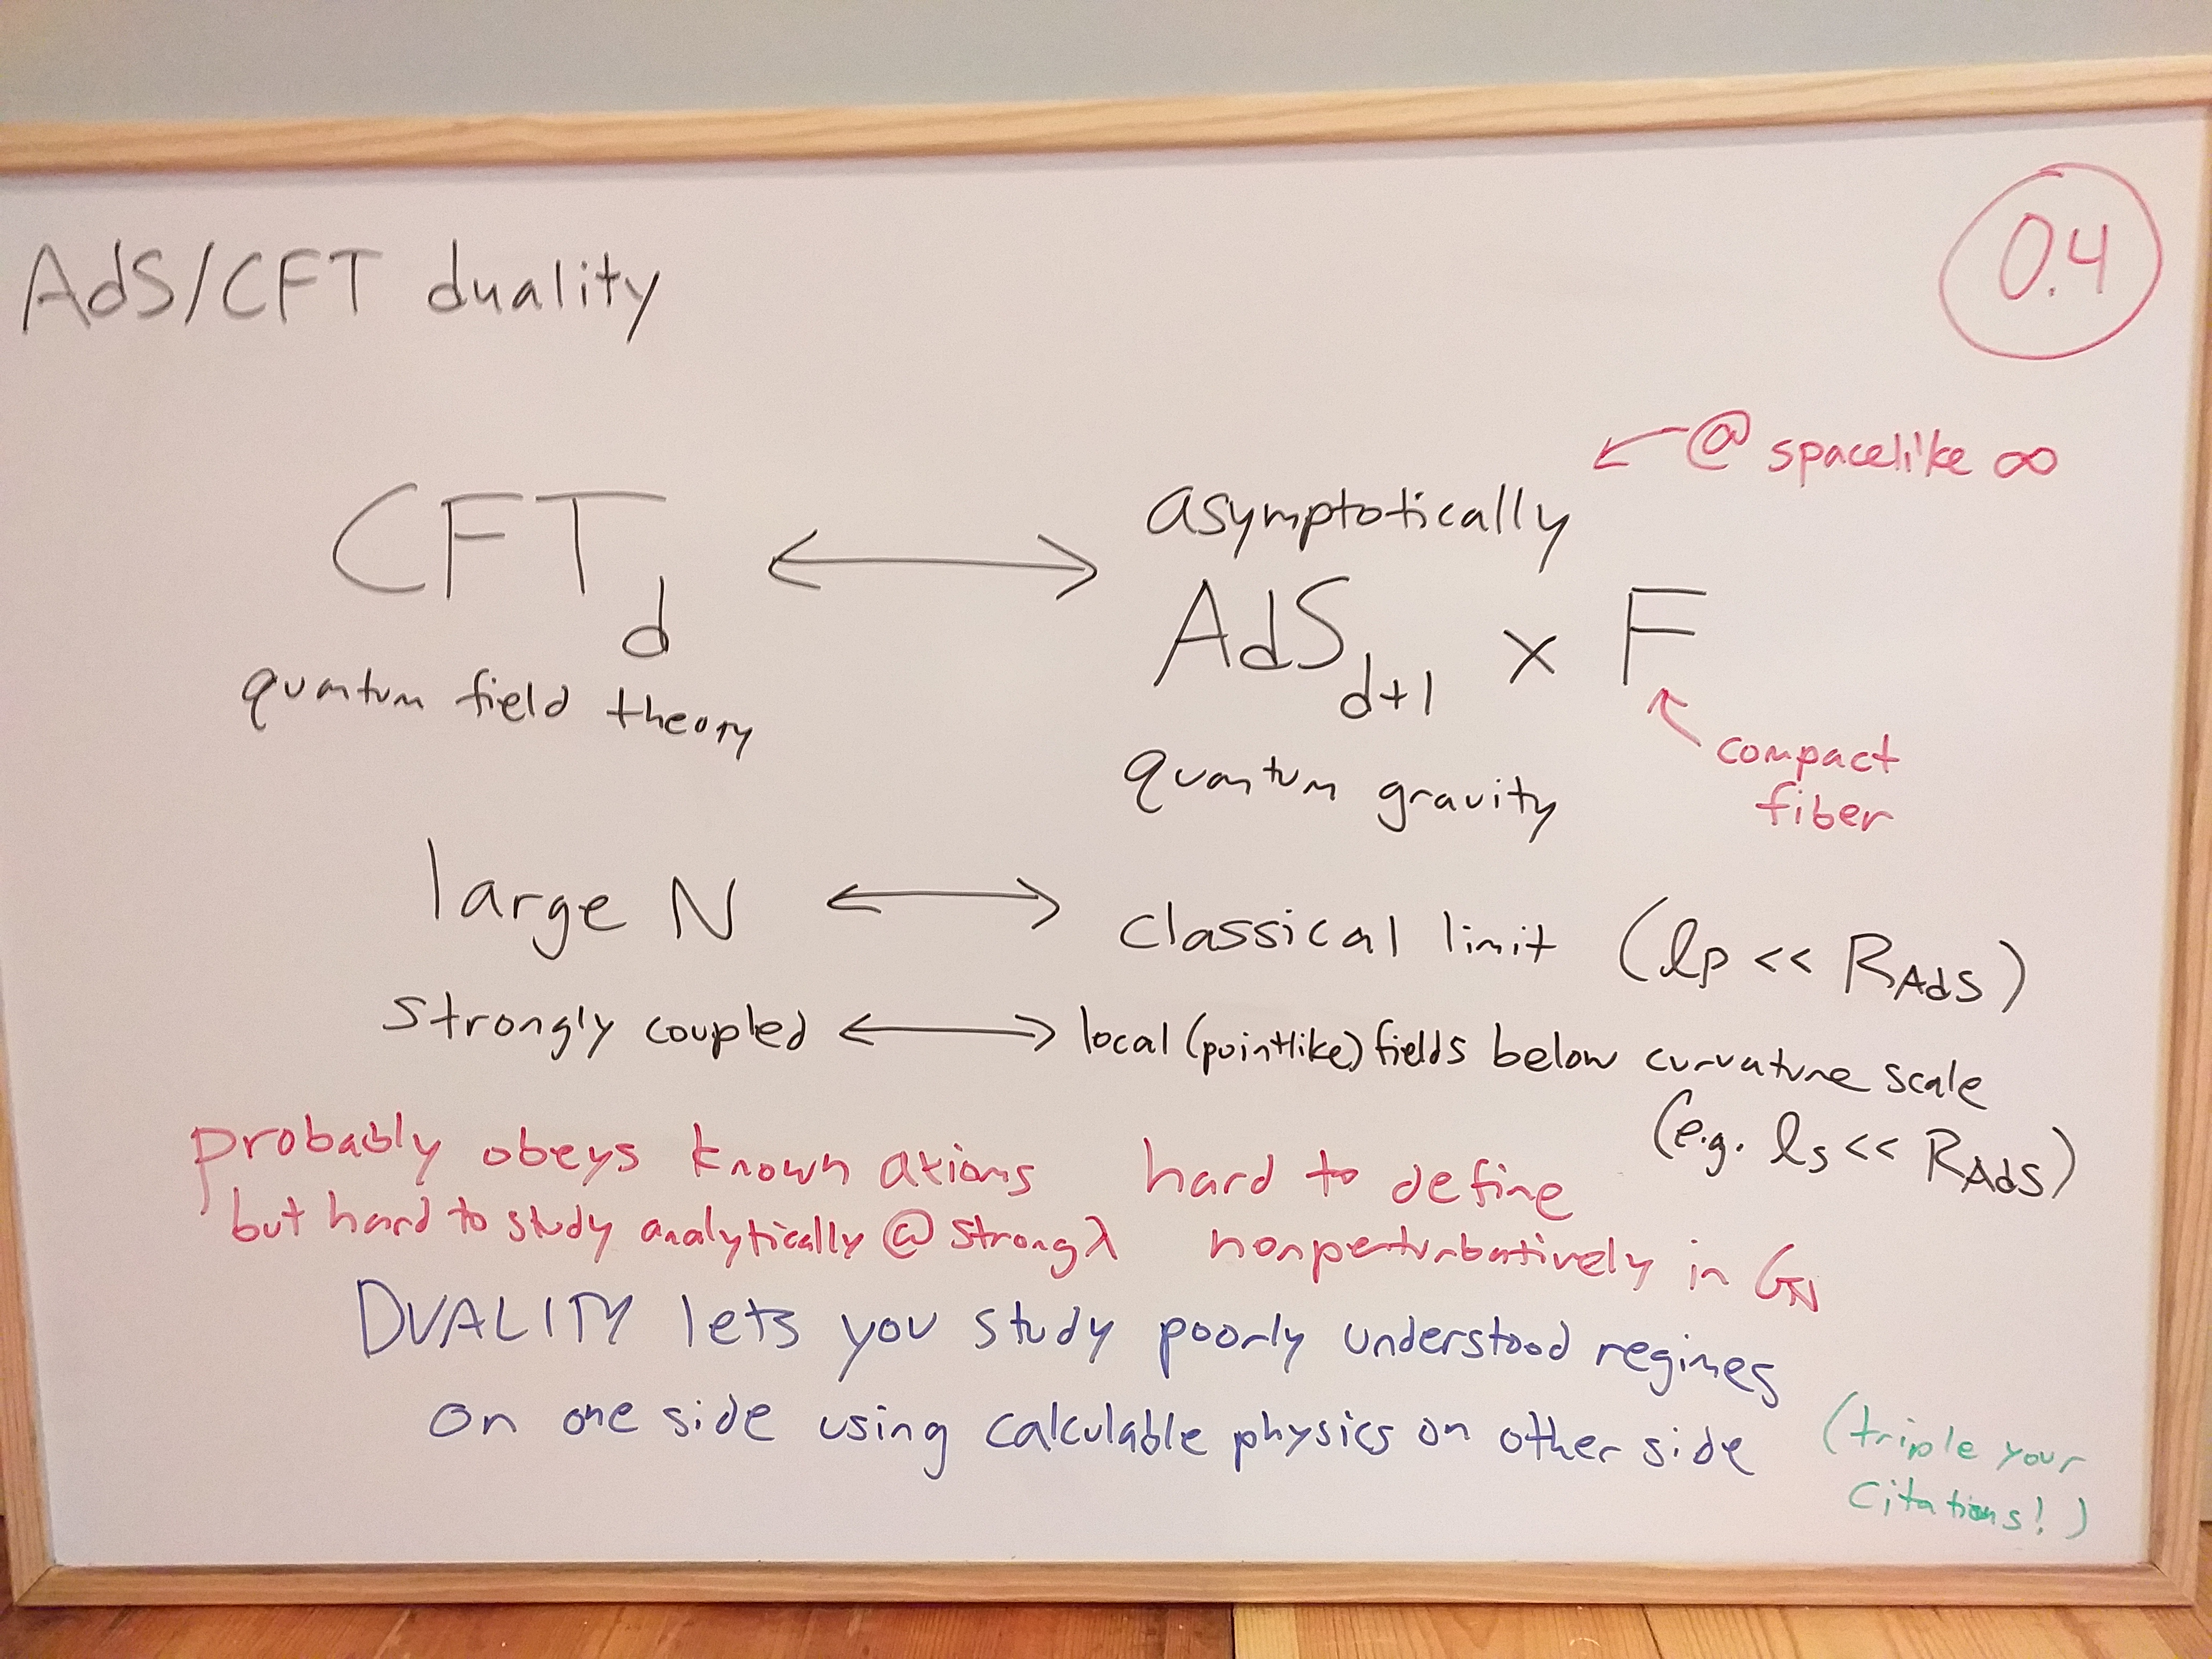 AdS/CFT duality
0.4
@ spacelike ∞
asymptotically
CFT_d ⟷ AdS_{d+1} × F
quantum field theory
quantum gravity
compact
fiber
large N ⟷ classical limit (lp << R_AdS)
strongly coupled ⟷ local (pointlike) fields below curvature scale
(e.g. ls << R_AdS)
probably obeys known axioms
but hard to study analytically @ strong λ
hard to define
nonperturbatively in G_N
DUALITY lets you study poorly understood regimes
on one side using calculable physics on other side
(triple your
citations!)